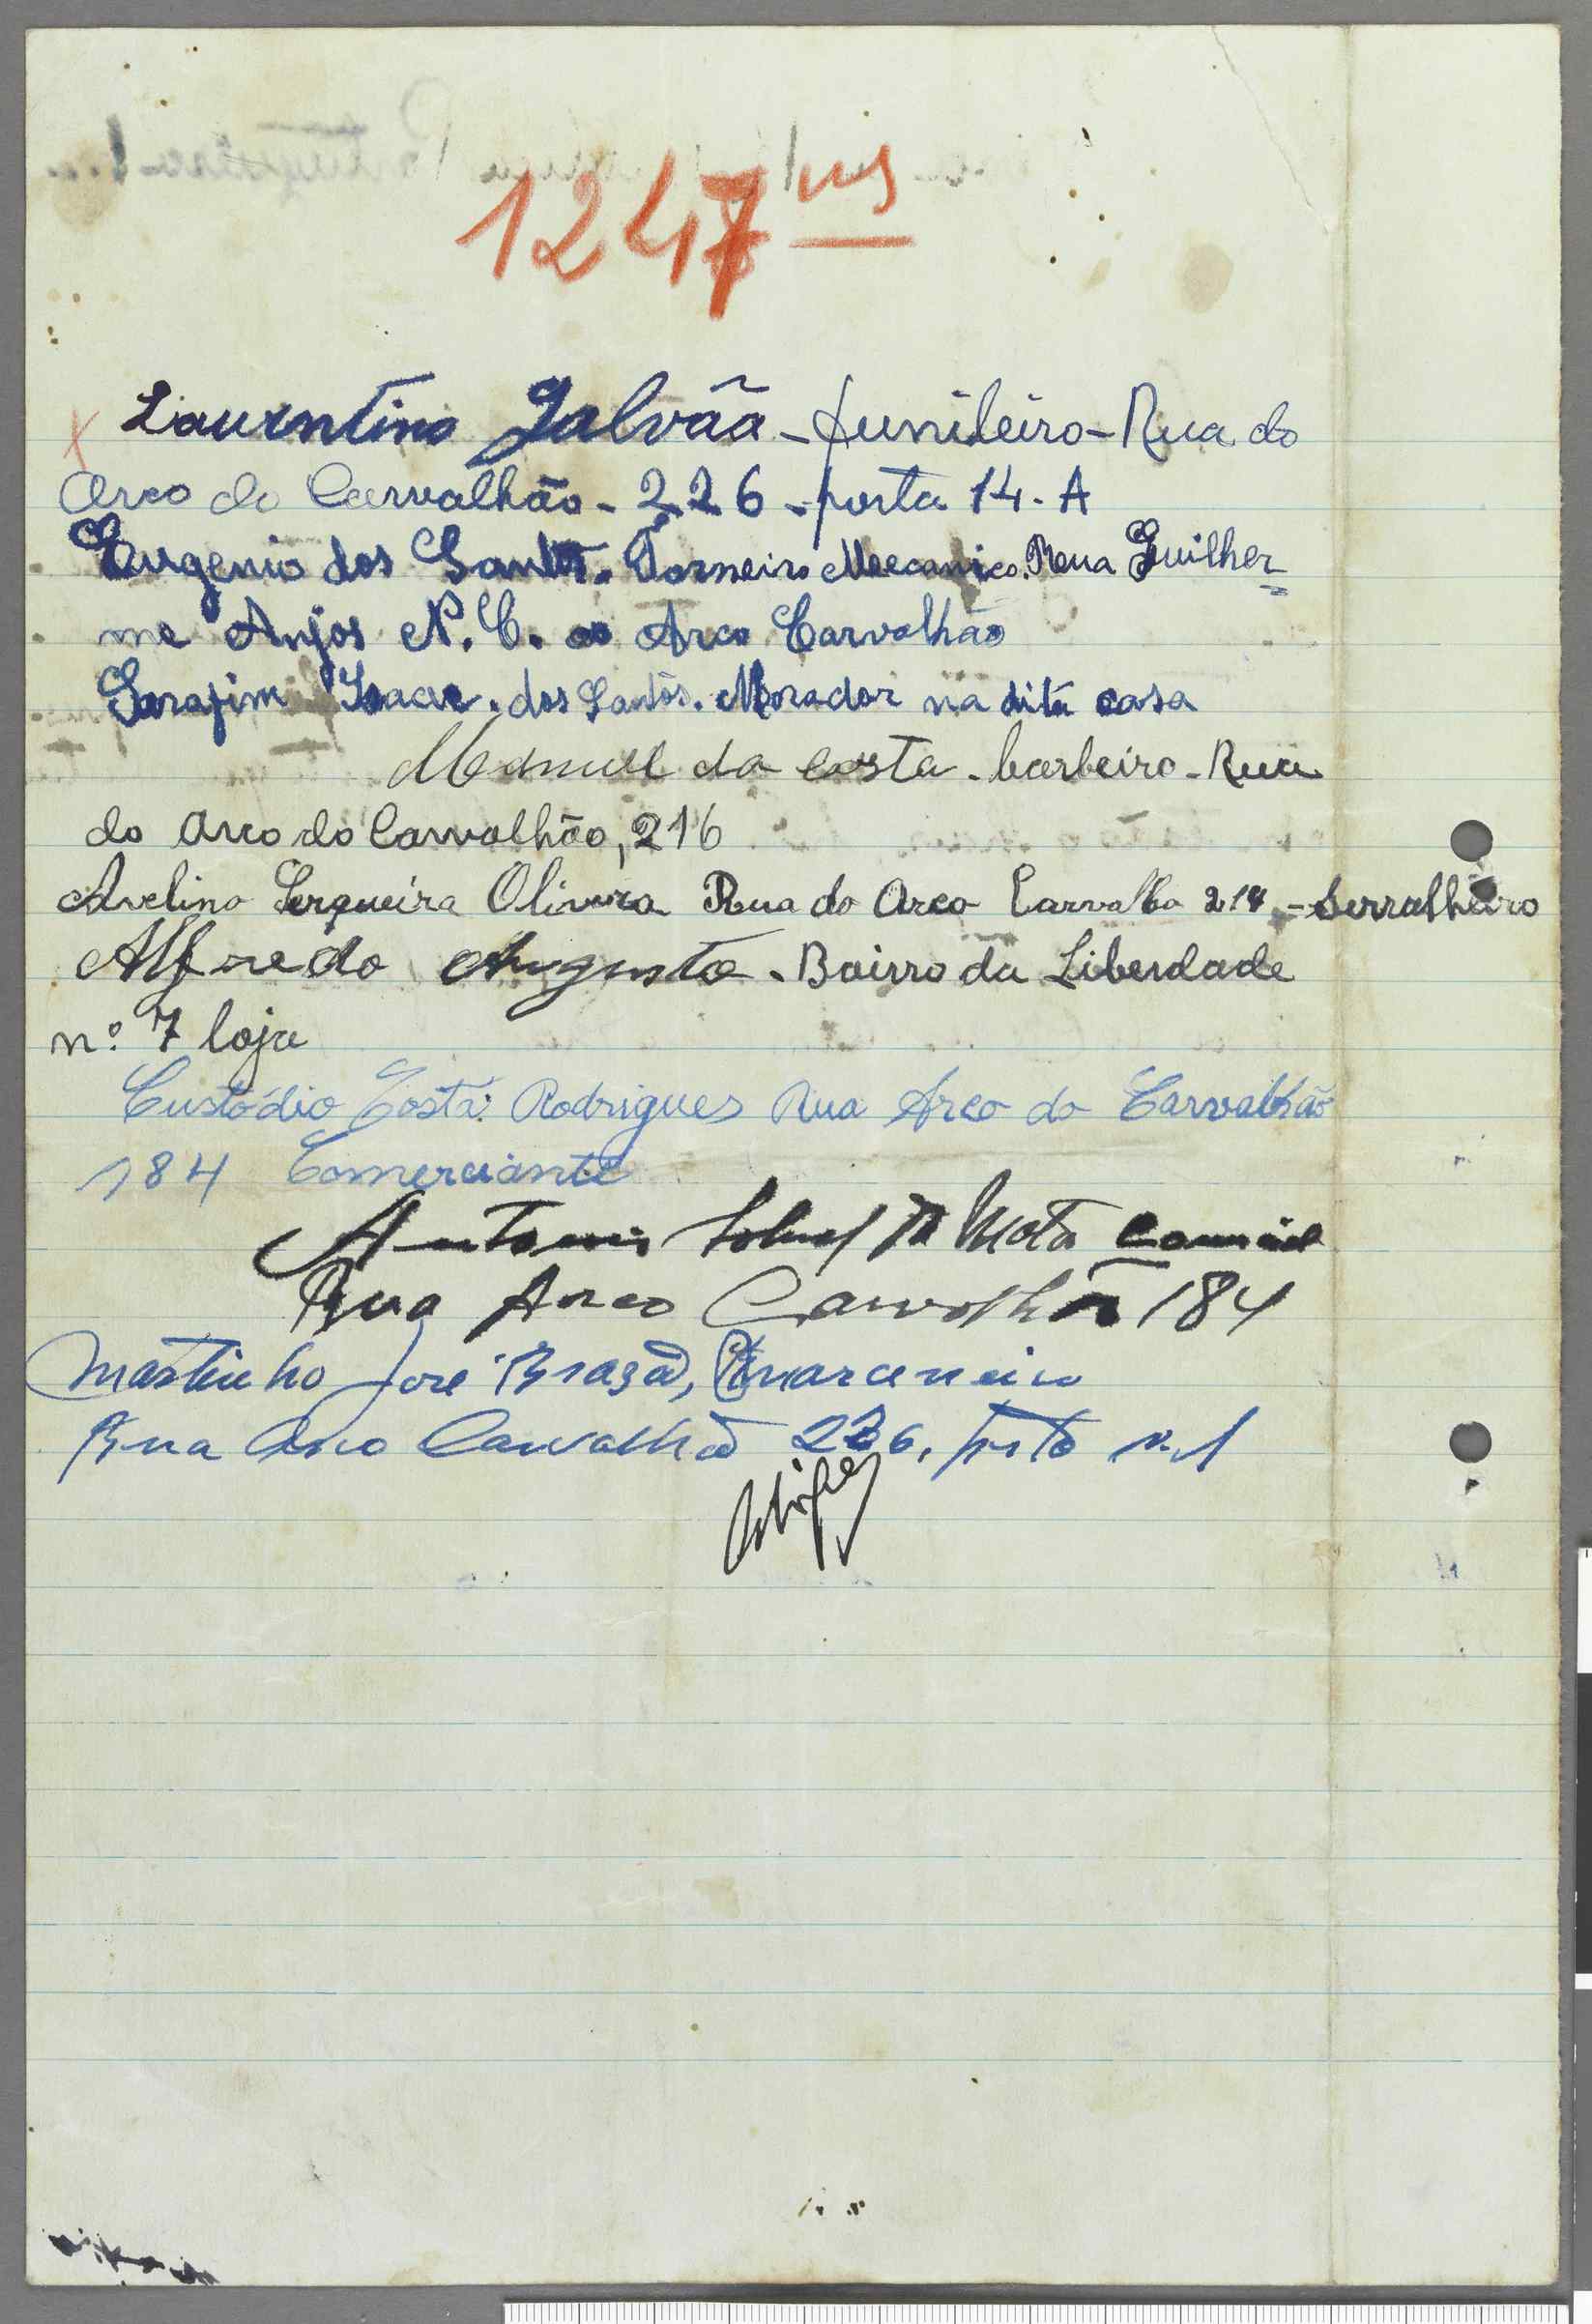 1247
Laurentino Galvão - funileiro - Rua do
Arco do Carvalhão - 226 - porta 14 - A
Eugenio dos Santos. Torneiro Meecanico. Rua Guilher=
me Anjos N. C. ao Arco Carvalhão
Sarafim Isaac. dos Santos. Morador na dita casa
Manuel da Costa - barbeiro - Rua
do Arco do Carvalhão, 216
Avelino Serqueira Olivera Rua do Arco Carvalho 214 - Serralheiro
Alfredo Augusto. Bairro da Liberdade
n.º 7 loja
Custódio Costa Rodrigues Rua Arco do Carvalhão
184 Comerciante
Antonio Mota
Rua Arco Carvalhão 184
Martinho José Brazão, marceneiro
Rua Arco Carvalhão 226, porta n. 1